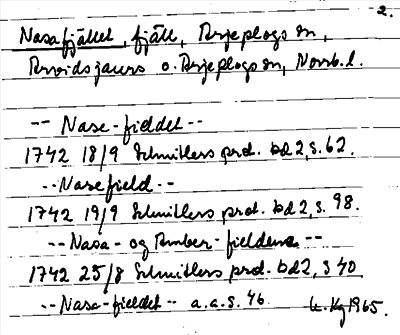 2.
Nasafjället, fjäll, Arjeplogs sn,
Arvidsjaurs o. Arjeplogs sn, Norrb. l.
-- Nase-fieldet --
1742 18/9 Schnitlers prot. bd 2, s. 62.
-- Nasefield --
1742 19/9 Schnitlers prot. bd 2, s. 98.
-- Nasa- og Umber-fieldene --
1742 25/8 Schnitlers prot. bd 2, s 40
-- Nasa-fieldet -- a.a.s. 46.
1965.